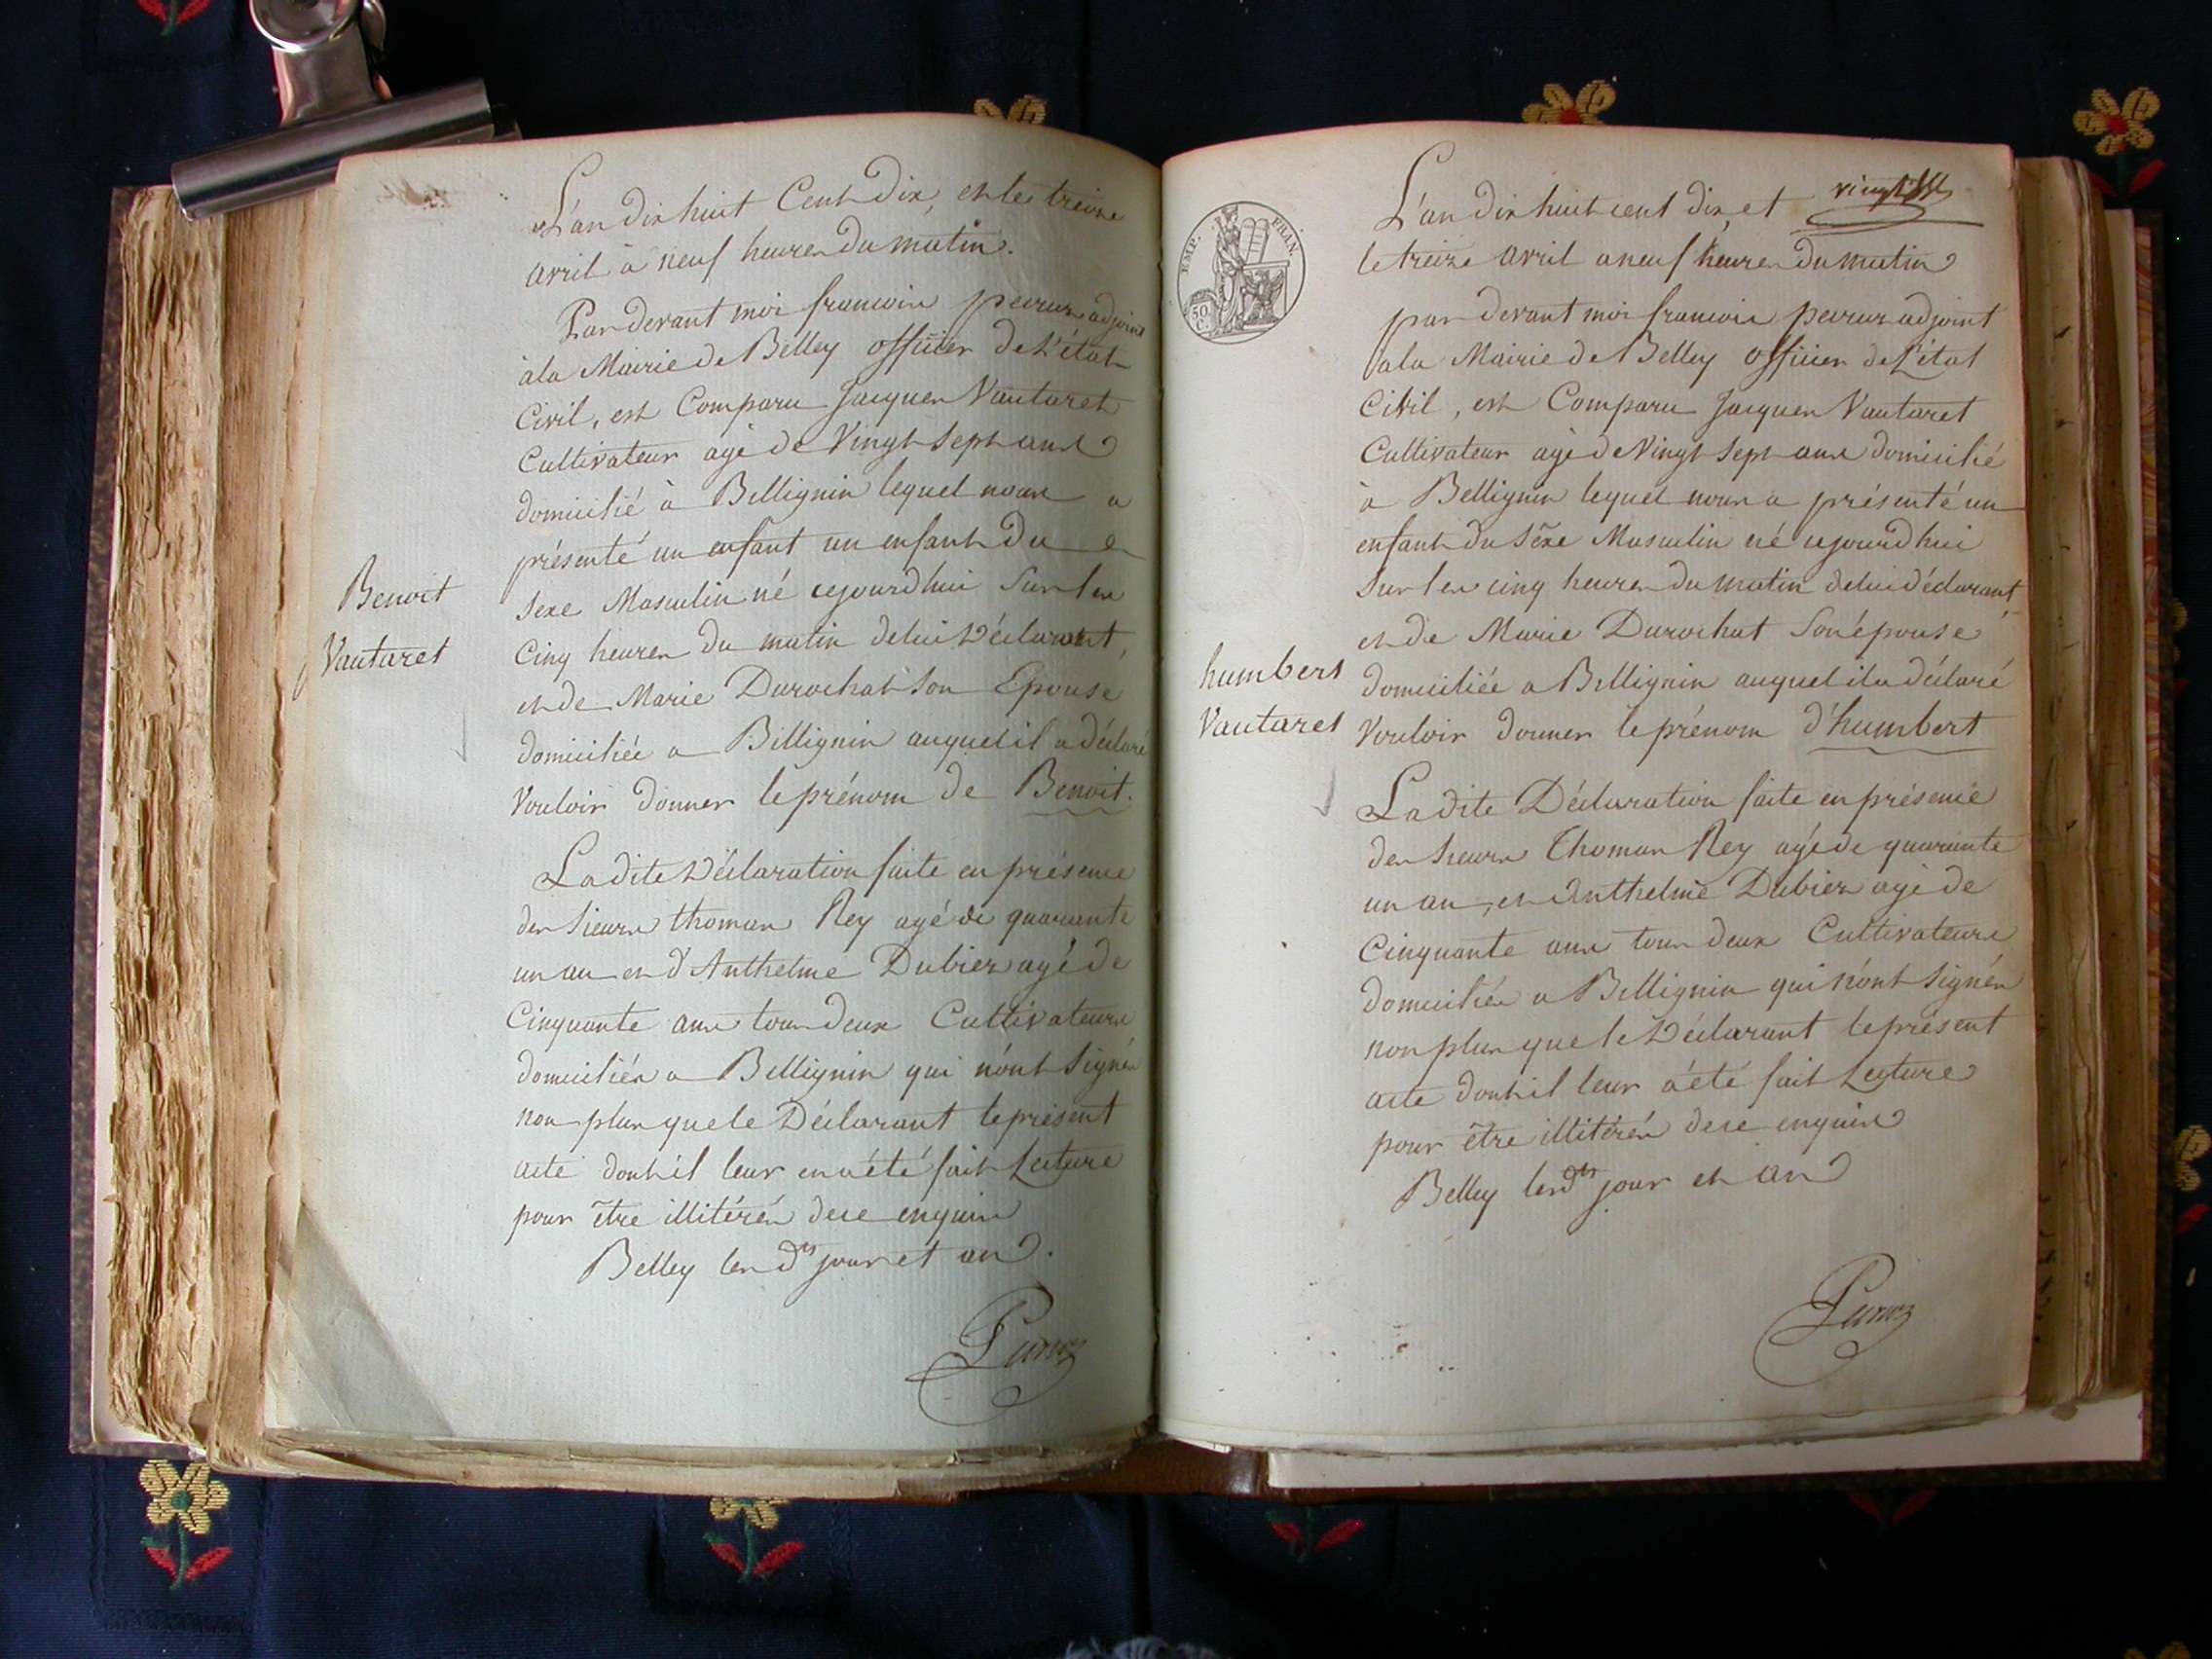 L'an dix huit Cent Dix, et le treize
avril à neuf heures du matin.
Pardevant moi francois peruz adjoint
à la Mairie de Belley officier de L'état
Civil, est Comparu Jacques Vautaret
Cultivateur agé de Vingt Sept ans
domicilié à Billignin lequel nous a
présenté un enfant un enfant du
Benoit
Sexe Masculin né cejourdhui Sur les
Vautaret
Cinq heures du matin de lui Déclarant,
et de Marie Durochat Son Epouse
domiciliée a Billignin auquel il a déclaré
Vouloir donner le prénom de Benoit.
La dite Déclaration faite en présence
des Sieurs thomas Rey agé de quarante
un an et d'Anthelme Dubiez agé de
Cinquante ans tous deux Cultivateurs
domiciliés a Billignin qui n'ont Signés
non plus que le Déclarant le présent
acte dont il leur en a été fait Lecture
pour être illitérés de ce enquis
Belley les dts jour et an.
Peruz
vingt
EMP. FRAN.
50 C.
L'an dix huit cent dix, et
le treize avril a neuf heures du matin
par devant moi francois peruz adjoint
a la Mairie de Belley officier de L'état
Civil, est Comparu Jacques Vautaret
Cultivateur agé de Vingt Sept ans domicilié
à Billignin lequel nous a présenté un
enfant du Sexe Masculin né cejourdhui
Sur les cinq heures du matin de lui déclarant,
et de Marie Durochat Son épouse
humbert
domiciliée a Billignin auquel il a déclaré
Vautaret
Vouloir donner le prénom d'humbert
La dite Déclaration faite en présence
des Sieurs Thomas Rey agé de quarante
un an, et Anthelme Dubiez agé de
Cinquante ans tous deux Cultivateurs
domiciliés a Billignin qui n'ont Signés
non plus que le Déclarant le présent
acte dont il leur a été fait Lecture
pour être illitérés de ce enquis
Belley les dts jour et an
Peruz